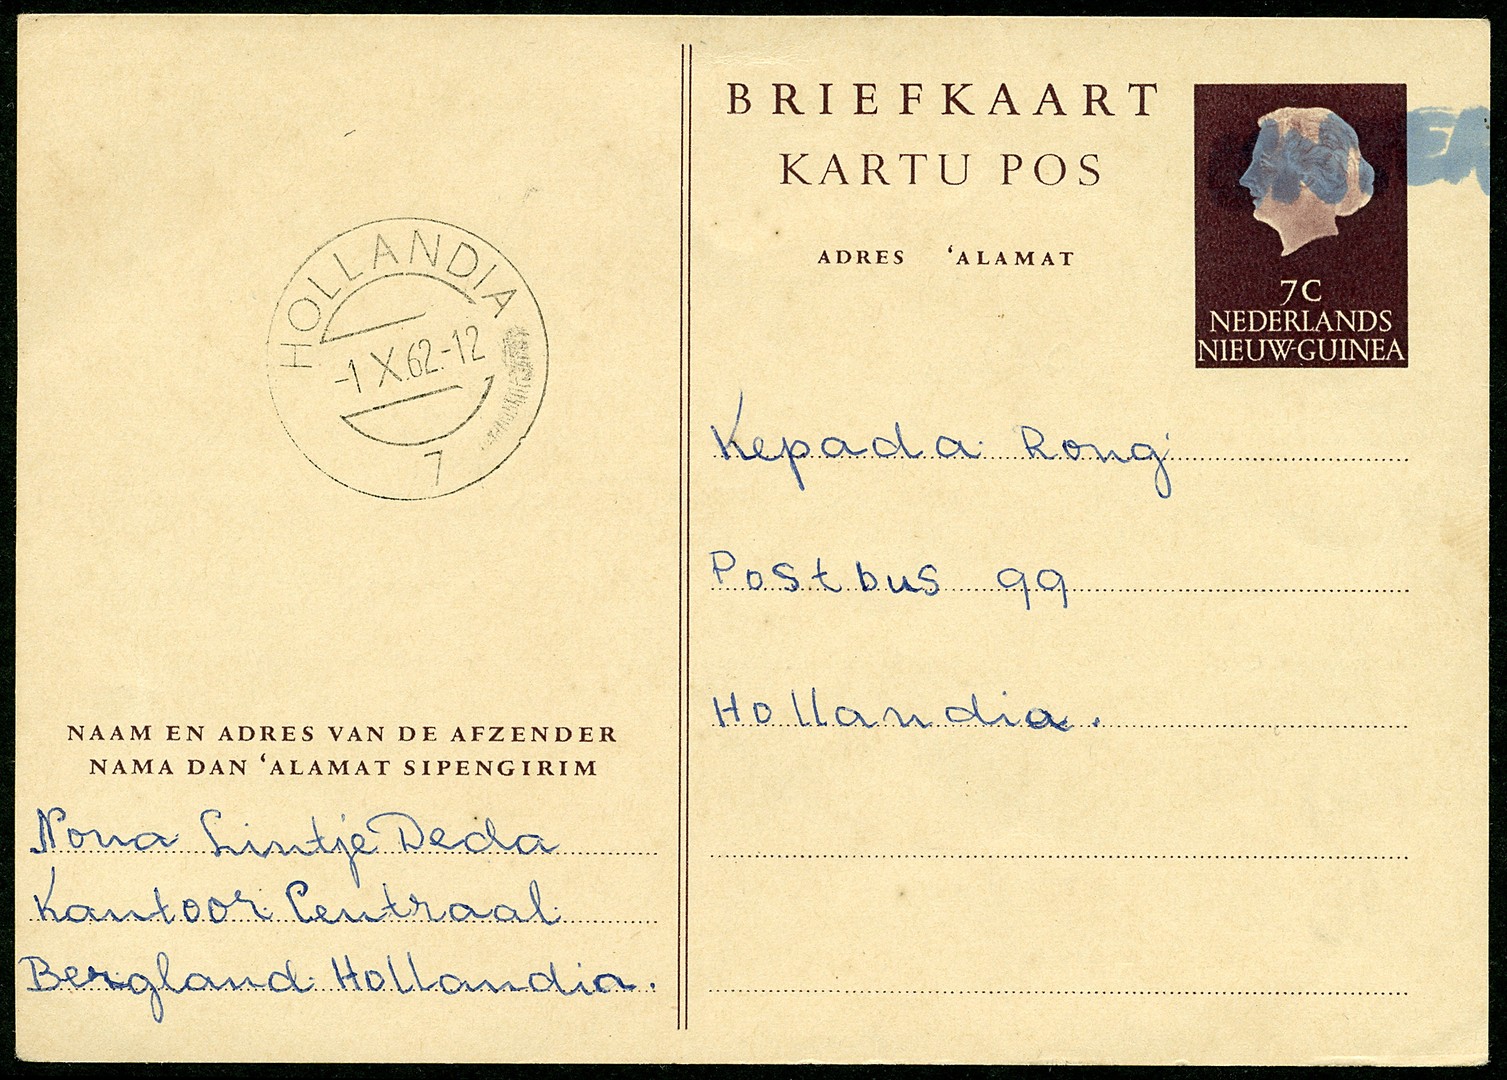 BRIEFKAART
KARTU POS
ADRES ‘ALAMAT
7C
NEDERLANDS
NIEUW-GUINEA
HOLLANDIA
-1 X.62.-12
7
Kepada Rong
Postbus 99
Hollandia.
NAAM EN ADRES VAN DE AFZENDER
NAMA DAN ‘ALAMAT SIPENGIRIM
Nona Lintje Deda
Kantoor Centraal
Bergland Hollandia.